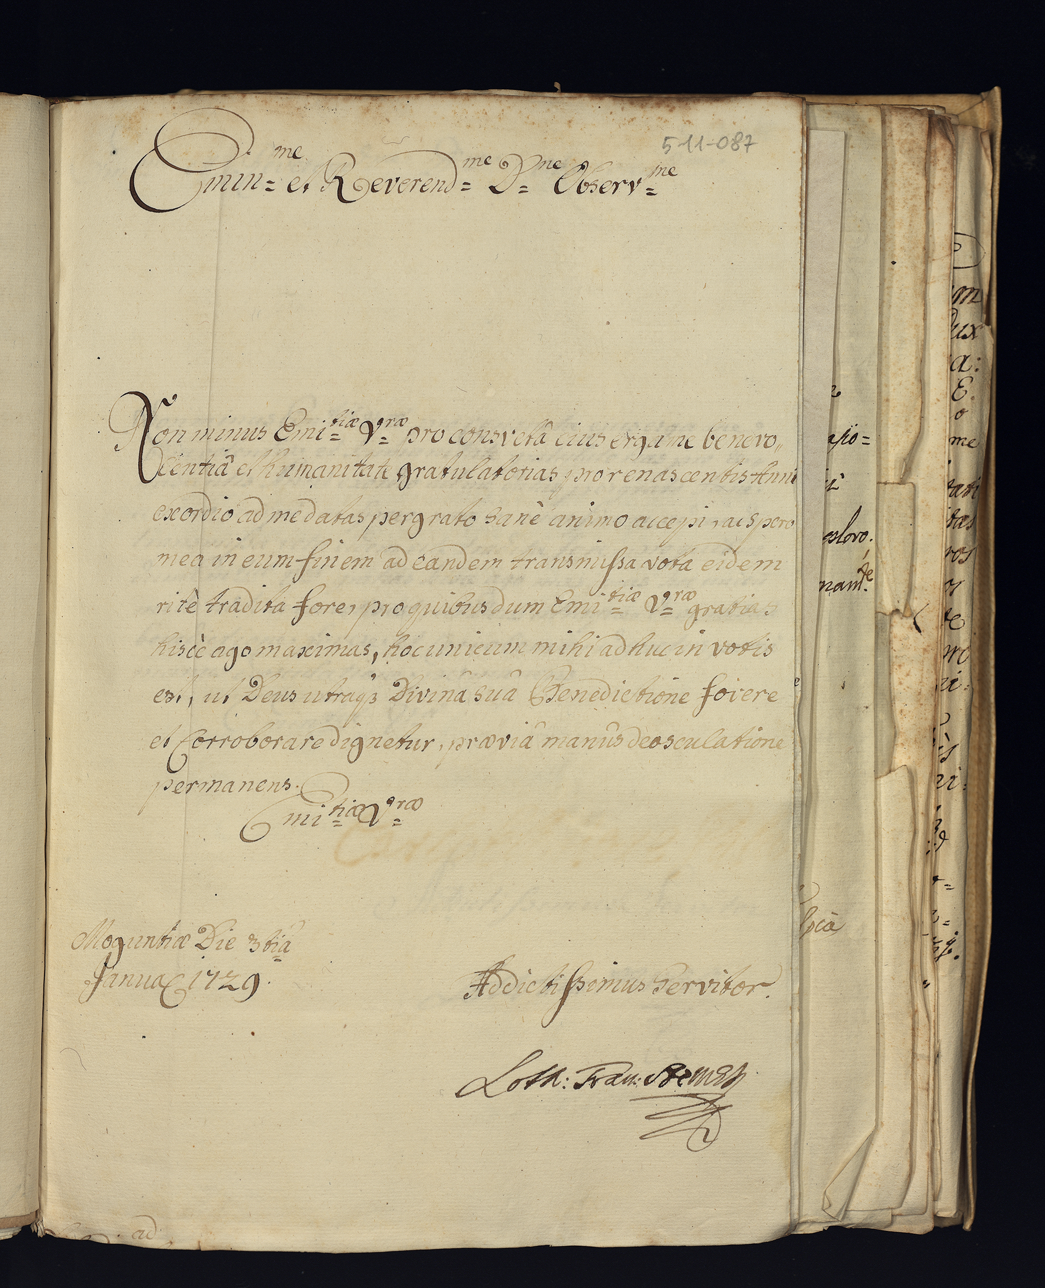 5-11-087
Emin=me et Reverend=me D=ne Observ=me
Non minus Emi=tiæ V=ræ pro consvetâ eius erga me benevo„
lentiâ et humanitate gratulatorias pro renascentis Anni
exordio ad me datas pergrato sanè animo accepi, ac spero
mea in eum finem ad eandem transmissa vota eidem
ritè tradita fore, pro quibus dum Emi=tiæ V=ræ gratias
hiscè ago maximas, hoc unicum mihi adhuc in votis
est, ut Deus utraqȝ Divinâ suâ Benedictione fovere
et Corroborare dignetur, præviâ manûs deosculatione
permanens.
Emi=tiæ V=ræ
Moguntiæ Die 3tia
Janua 1729.
Addictissimus Servitor.
Loth: Fran:
ad